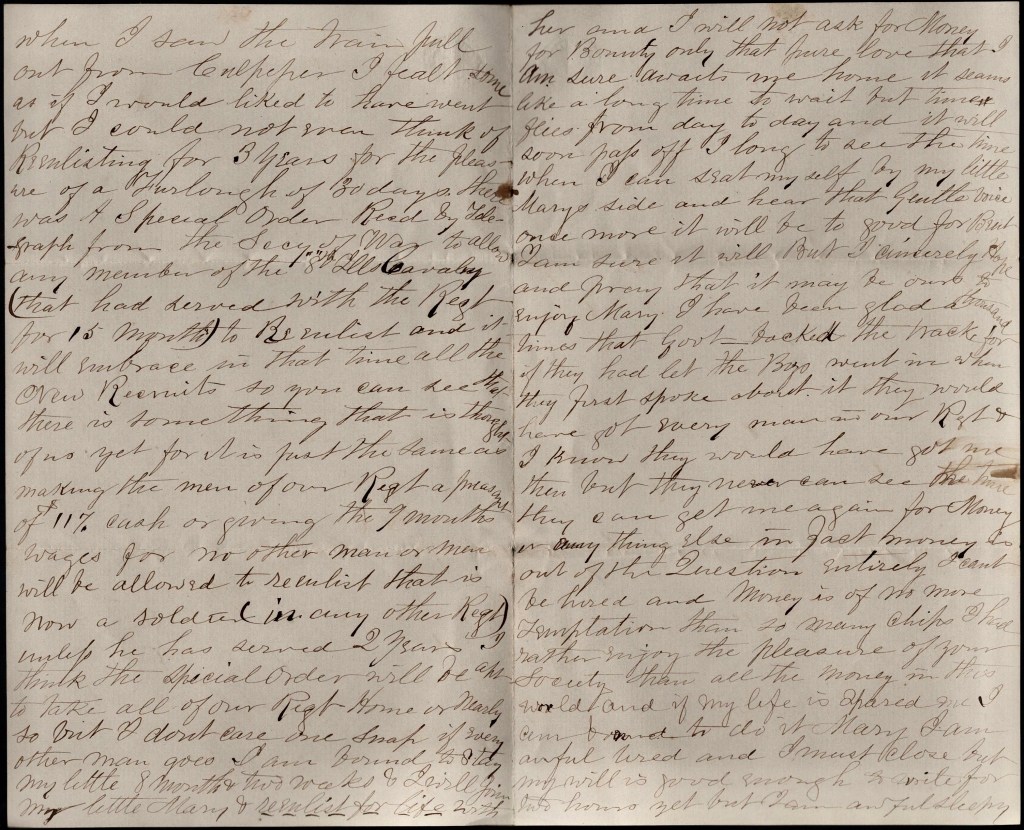 when I saw the train pull
out from Culpeper I fealt some
as if I would liked to have went
but I could not even think of
Reenlisting for 3 Years for the pleas-
ure of a Furlough of 30 days. there
was A Special Order Recd by Tele-
graph from the Secy of War to allow
any member of the 8th Ills Cavalry
(that had served with the Regt
for 15 months) to Reenlist and it
will embrace in that time all the
New Recruits so you can see that
there is something that is thought
of us yet for it is just the same as
making the men of our Regt a present
of 117 cash or giving the 9 months
wages for no other man or men
will be allowed to reenlist that is
now a soldier (in any other Regt)
unless he has served 2 Years I
think the Special Order will be apt
to take all of our Regt Home or Nearly
so but I dont care one snap if every
other man goes I am bound to stay
my little 8 months & two weaks & I will
my little Mary & reenlist for life with
her and I will not ask for Money
for Bounty only that pure love that I
am sure awaits me home it seams
like a long time to wait but time
flies from day to day and it will
soon pass off I long to see the time
when I can seat myself by my little
Marys side and hear that Gentle voice
once more it will be to good for
I am sure it will But I cincerely hope
and pray that it may be ours to
enjoy Mary. I have been glad a thousand
times that Govt backed the track for
if they had let the Boys went in when
they first spoke about it they would
have got every man in our Regt &
I know they would have got me
then but they never can see the time
they can get me again for Money
or any thing else in fact money is
out of the Question entirely I cant
be hired and Money is of no more
Temptation than so many chips I had
rather enjoy the pleasure of your
Society than all the money in this
world and if my life is spared me I
am bound to do it Mary I am
awful tired and I must close but
my will is good enough to write for
two hours yet but I am awful sleepy